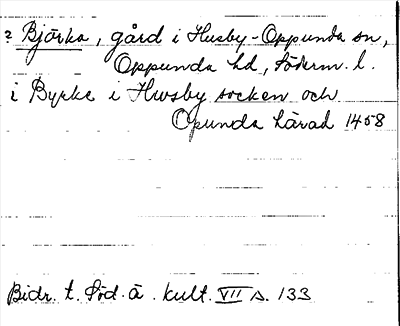 ? Björka, gård i Husby-Oppunda sn,
Oppunda hd, Söderm. l.
i Byrke i Hwsby socken och
Opunda härad 1458
Bidr. t. Söd. ä. kult. VII s. 133